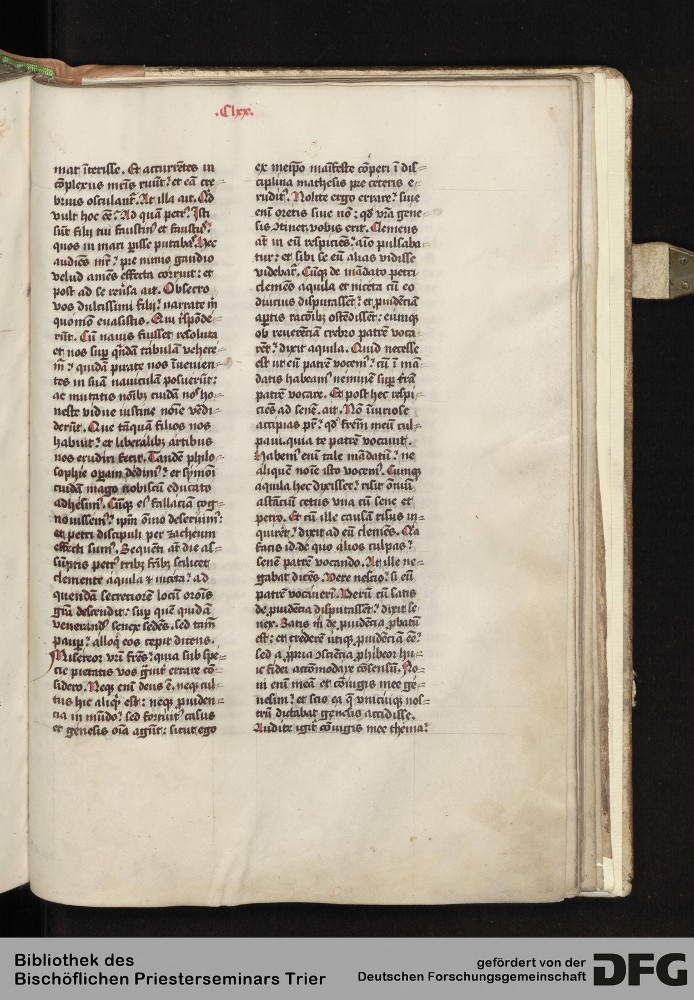 .Clxx.
mat īterisse. Et accurrētes in
cōplexus mr̄is ruūt: et eā cre
brius osculant̄. At illa ait. Qd
vult hoc eē? Ad quā petr᷒. Isti
sūt filii tui faustin᷒ et faust᷒:
quos in mari pisse putabas. Hec
audiēs mr̄: pre nimio gaudio
velud amēs effecta corruit: et
post ad se reūsa ait. Obsecro
vos dulcissimi filii: narrate m̄
quomō evasistis. Qui rs̄pōde
rūt. Cū navis fuisset resoluta
et nos sup̄ qn̄dā tabulā vehere
m᷒: quidā pirate nos īuenien
tes in suā nauiculā posuerūt:
ac mutatis noīb᷒ cuidā no᷒ ho
neste vidue iustine noīe vēdi
derūt. Que tāquā filios nos
habuit: et liberalib᷒ artibus
nos erudiri fecit. Tandē philo
sophie opam dedim᷒: et symoī
cuidam mago nobiscū educato
adhesim᷒. Cūq̄ ei᷒ fallaciā cog
nouissem᷒: ip̄m oīno deseruim᷒:
et petri discipuli per zacheum
effecti sum᷒. Sequēti at̄ die as
sūptis petr᷒ trib᷒ frīb᷒ scilicet
clemente aquila et niceta: ad
quendā secretiorē locū orōnis
grā descendit: sup̄ quē quidā
venerand᷒ senex sedēs. sed tam̄
paup̄: alloqi eos cepit dicens.
Misereor vr̄i fr̄es: quia sub spe
cie pietatis vos gͣuit̄ errare cō
sidero. Neq̄ enī deus ē. neq̄ cul
tus hic aliq̄s est: neq̄ prouiden
tia in mūdo: sed fortuit᷒ casus
et genesis oīa agūt: sicut ego
ex meip̄o māifeste cōperi ī dis
ciplina mathesis pre ceteris e
rudit᷒. Nolite ergo errare: siue
enī oretis siue nō: qd̄ vr̄a gene
sis ↄtinet. vobis erit. Clemens
at̄ in eū respiciēs: aīo pulsaba
tur: et sibi se eū alias vidisse
videbat̄. Cūq̄ de mādato petri
clemēs aquila et niceta cū eo
diucius disputassēt: et puidētiā
aptis racōib᷒ ostēdissēt: eumq̄
ob reuerētiā crebro patrē voca
rēt: dixit aquila. Quid necesse
est ut eū patrē vocem᷒: cū ī mā
datis habeam᷒ neminē sup̄ trā
patrē vocare. Et post hec respi
ciēs ad senē. ait. Nō iniuriose
accipias pr̄: qd̄ fr̄em meū cul
paui. quia te patrē vocauit.
Habem᷒ enī tale mādatū: ne
aliquē noīe isto vocem᷒. Cumq̄
aquila hec dixisset: risit oīniū
astātiū cetus vna cū sene et
petro. Et cū ille causā risus in
quireret: dixit ad eū clemēs. Qa
facis id de quo alios culpas:
senē patrē vocando. At ille ne
gabat dicēs. Vere nescio: si eū
patrē vocauerī. Verū cū satis
de puidētia disputassēt: dixit se
nex. Satis m̄ de puidētia pbatū
est: et crederē utiq̄ puidētiā eē:
sed a ppria ↄsciētia phibeor hu
ic fidei accōmodare cōsensū. No
ui enī meā et cōiugis mee ge
nesim: et scio ea q̄ vnicuiq̄ nos
trū dictabat genesis accidisse.
Audite igit̄ cōiugis mee thema:
Bibliothek des
Bischöflichen Priesterseminars Trier
gefördert von der
Deutschen Forschungsgemeinschaft
DFG